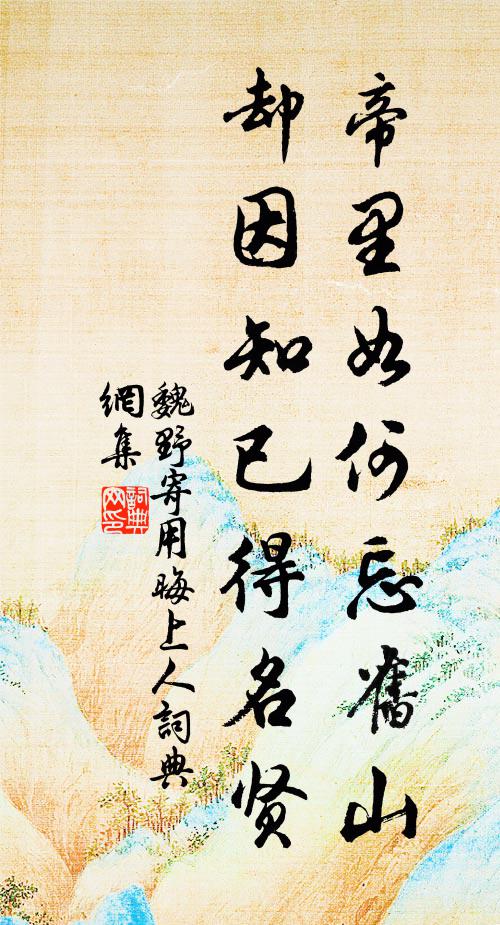 帝里如何忘舊山
却因知已得名贤
魏野寄用晦上人詞典
網集
詞典
网印